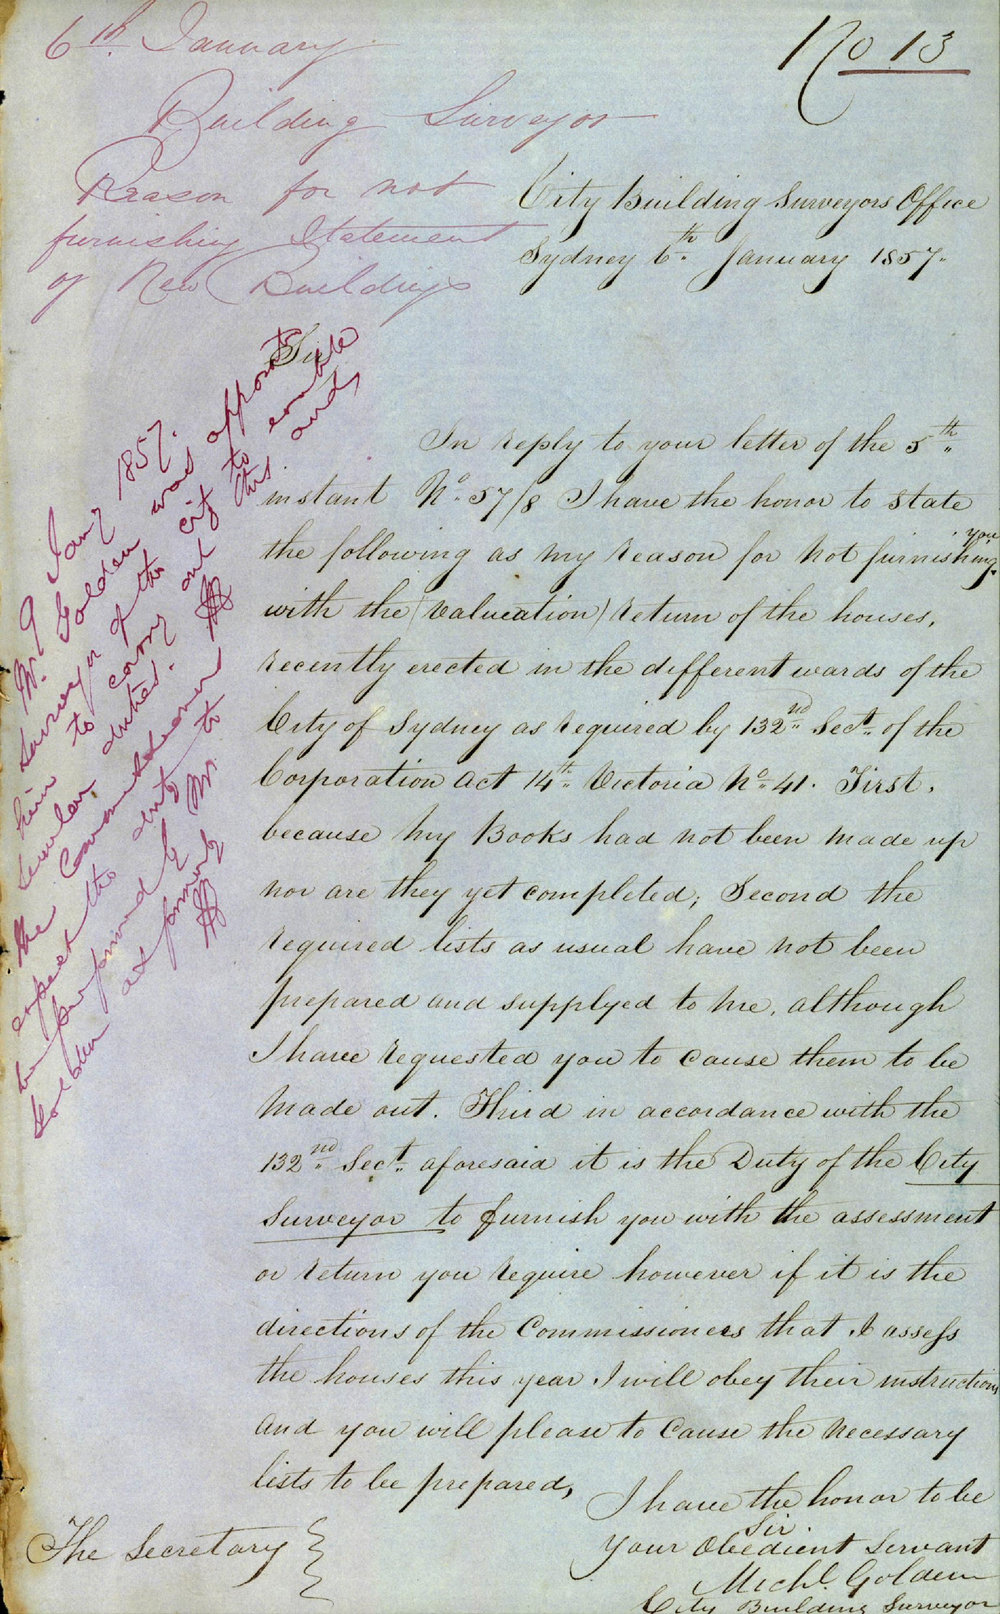 No 13
6th. January
Building Surveyor
Reason for not
furnishing Statement
of New Buildings
City Building Surveyors Office
Sydney 6th. January 1857.
Sir
In reply to your letter of the 5th
instant No. 57/8 I have the honor to state
the following as my reason for not furnishing you
with the (valueation) return of the houses,
recently erected in the different wards of the
City of Sydney as required by 132nd Sect. of the
Corporation Act 14th. Victoria No. 41. First,
because my Books had not been made up
nor are they yet completed; Second the
required lists as usual have not been
prepared and supplyed to me, although
I have requested you to cause them to be
made out. Third in accordance with the
132nd Sect. aforesaid it is the Duty of the City
Surveyor to furnish you with the assessment
or return you require however if it is the
directions of the Commissioners that I assess
the houses this year I will obey their instructions
and you will please to cause the necessary
lists to be prepared,
I have the honor to be
Sir
Your Obedient Servant
Michl. Golden
City Building Surveyor
The Secretary
9 Jany 1857.
Mr. Golden was appointed
Surveyor of the city to enable
him to carry out this and
similar duties.
The Commissioners
expect the duty to
be performed by Mr.
Golden as formerly